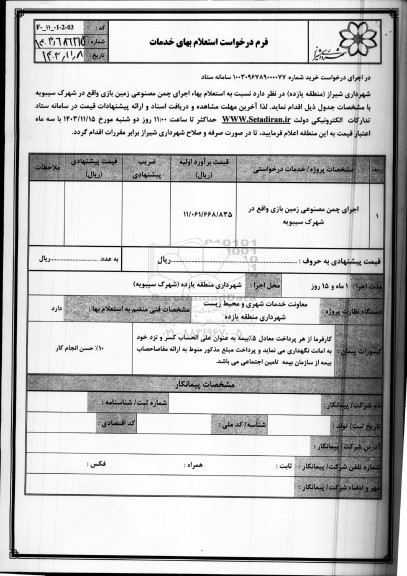 فرم درخواست استعلام بهای خدمات
کد : F-_11_-1-2-03
شماره :
تاریخ : ۱۴۰۳/۱۱/۸
در اجرای درخواست خرید شماره ۱۰۰۳۰۹۶۷۸۹۰۰۰۰۷۷ سامانه ستاد
شهرداری شیراز (منطقه یازده) در نظر دارد نسبت به استعلام بهاء اجرای چمن مصنوعی زمین بازی واقع در شهرک سیبویه
با مشخصات جدول ذیل اقدام نماید. لذا آخرین مهلت مشاهده و دریافت اسناد و ارائه پیشنهادات قیمت در سامانه ستاد
تدارکات الکترونیکی دولت WWW.Setadiran.ir حداکثر تا ساعت ۱۱:۰۰ روز دو شنبه مورخ ۱۴۰۳/۱۱/۱۵ با سه ماه
اعتبار قیمت به این منطقه اعلام فرمایید، تا در صورت صرفه و صلاح شهرداری شیراز برابر مقررات اقدام گردد.
مشخصات پروژه/ خدمات درخواستی
قیمت برآورد اولیه (ریال)
ضریب پیشنهادی
قیمت پیشنهادی (ریال)
ملاحظات
۱
اجرای چمن مصنوعی زمین بازی واقع در
شهرک سیبویه
۱۱/۰۶۱/۶۶۸/۸۳۵
قیمت پیشنهادی به حروف : ............ریال
به عدد: ............ریال
مدت اجرا: ۱ ماه و ۱۵ روز
محل اجرا : شهرداری منطقه یازده (شهرک سیبویه)
دستگاه نظارت پروژه :
معاونت خدمات شهری و محیط زیست
شهرداری منطقه یازده
مشخصات فنی منضم به استعلام بها : دارد
کسورات پیمان :
کارفرما از هر پرداخت معادل ۵٪بیمه به عنوان علی الحساب کسر و نزد خود
به امانت نگهداری می نماید و پرداخت مبلغ مذکور منوط به ارائه مفاصاحساب
بیمه از سازمان بیمه تامین اجتماعی می باشد.
۱۰٪ حسن انجام کار
مشخصات پیمانکار
نام شرکت/ پیمانکار:
شماره ثبت/ شناسنامه :
تاریخ ثبت/ تولد :
شناسه/ کد ملی :
کد اقتصادی :
آدرس شرکت/ پیمانکار :
شماره تلفن شرکت/ پیمانکار :
ثابت :
همراه :
فکس :
مهر و امضاء شرکت/ پیمانکار :